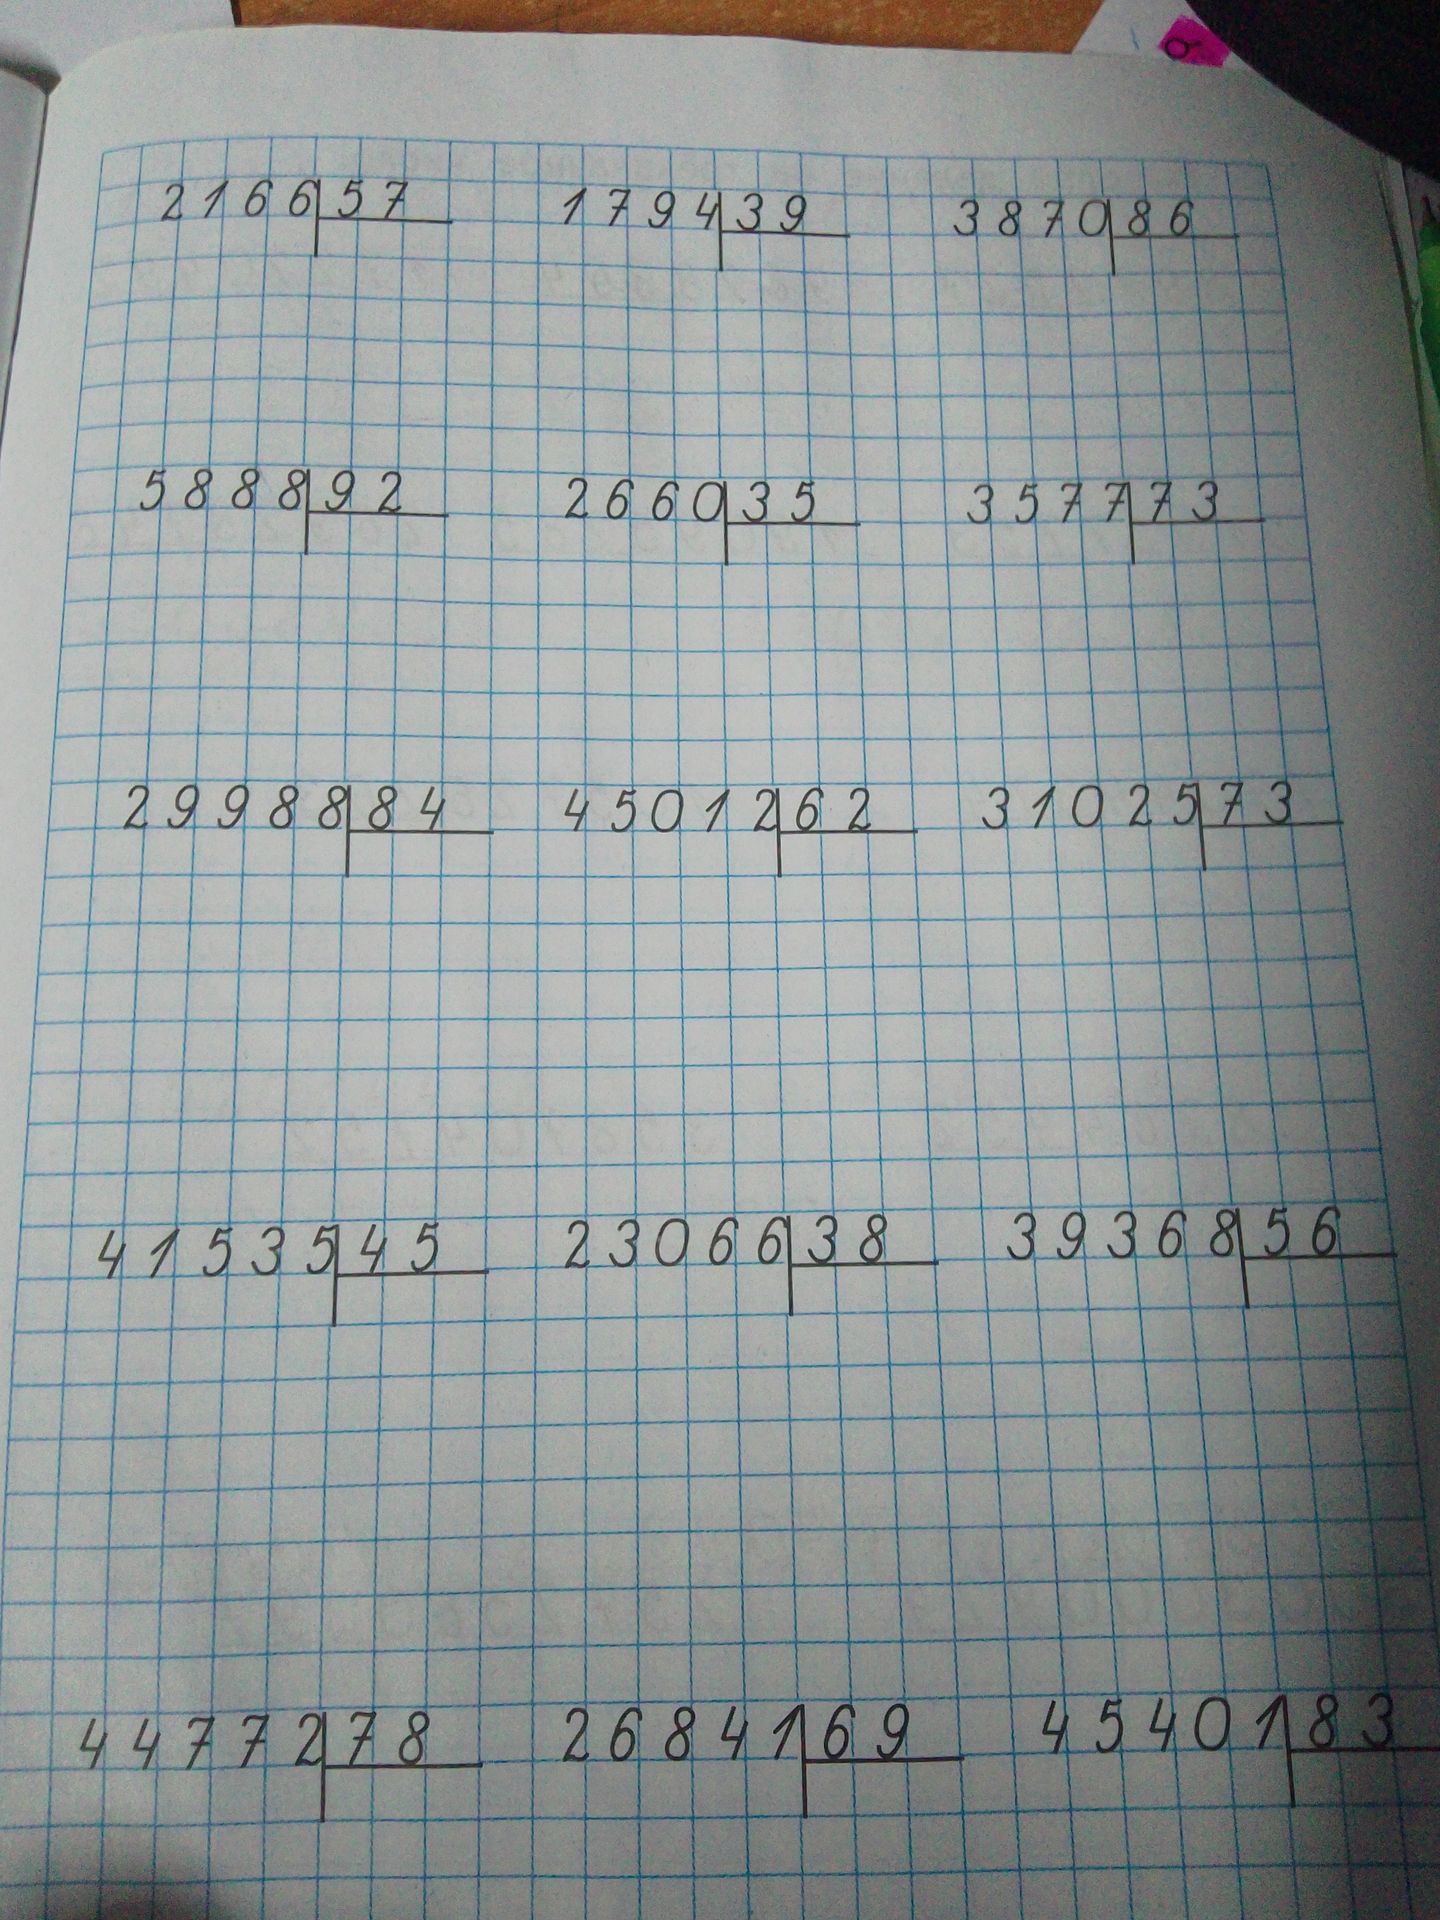 2166 57 1794 39 3870 86
5888 92 2660 35 3577 73
29988 84 45012 62 31025 73
41535 45 23066 38 39368 56
44772 78 26841 69 45401 83